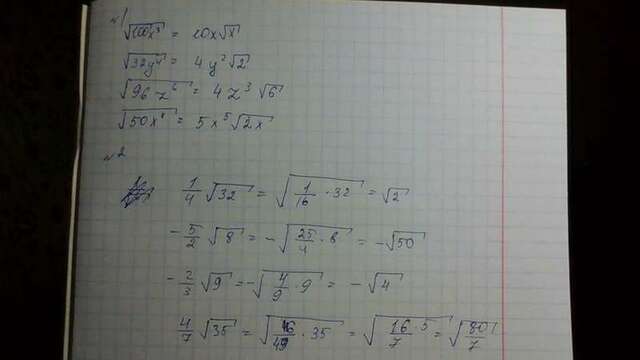 №1
√100x³ = 10x√x
√32y⁴ = 4y²√2
√96z⁶ = 4z³√6
= 5x⁵√2x
№2
1/4 √32 = √(1/16 · 32) = √2
-5/2 √8 = -√(25/4 · 8) = -√50
-2/3 √9 = -√(4/9 · 9) = -√4
4/7 √35 = √(16/49 · 35) = √(16·5/7) = √(80/7)